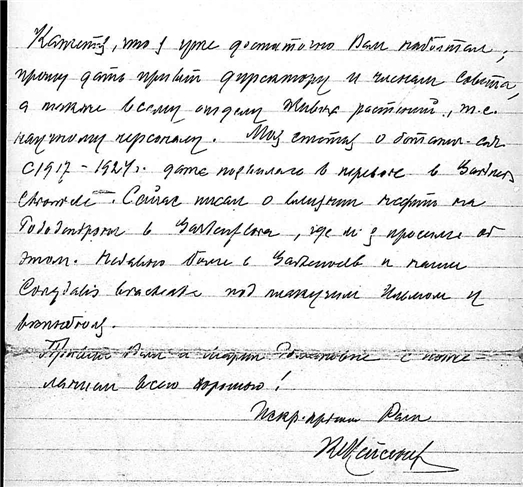 Кажется, что я уже достаточно Вам наболтал,
прошу дать привет директору и членам Совета,
а также всему отделу Живых растений, т.е.
научному персоналу. Моя статья о ботанич. саде
с 1917 – 1924 г. даже появилась в переводе в Gardners
Chronicle. Сейчас писал о влиянии на
Рододендроны в Gartenflora, где м. я просили об
этом. Недавно были в и наши
Corydalis bracteata под Ильмом и
Привет Вам и Марии Романовне с поже-
ланием всего хорошего!
Искр. преданный Вам